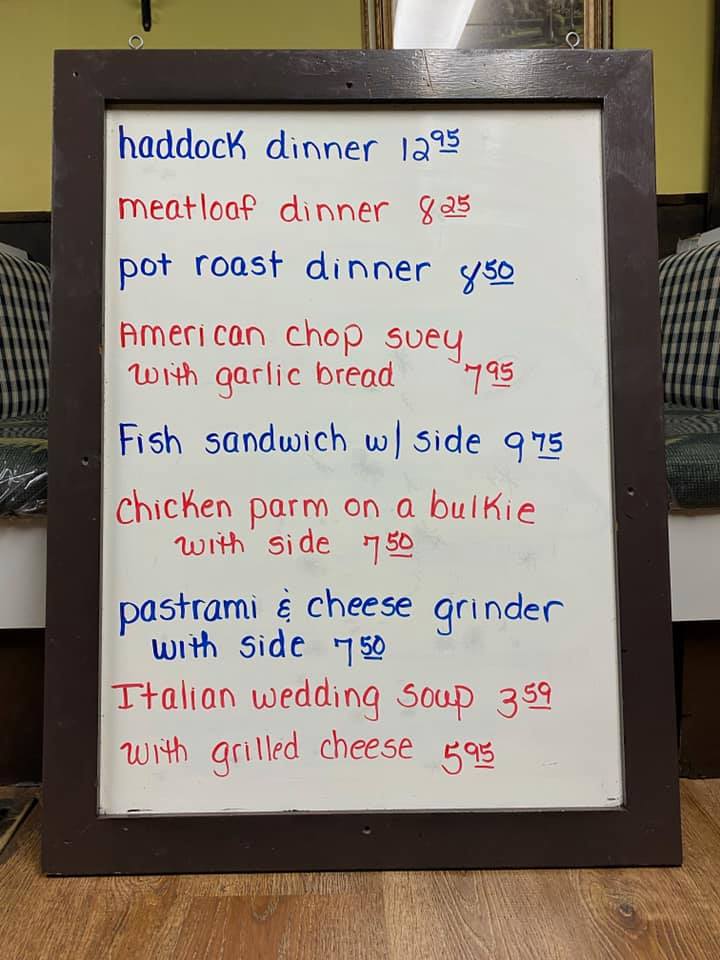 haddock dinner 12 95
meatloaf dinner 8 25
pot roast dinner 8 50
American chop suey
with garlic bread 7 95
Fish sandwich w/ side 9 75
chicken parm on a bulkie
with side 7 50
pastrami & cheese grinder
with side 7 50
Italian wedding soup 3 59
with grilled cheese 5 95